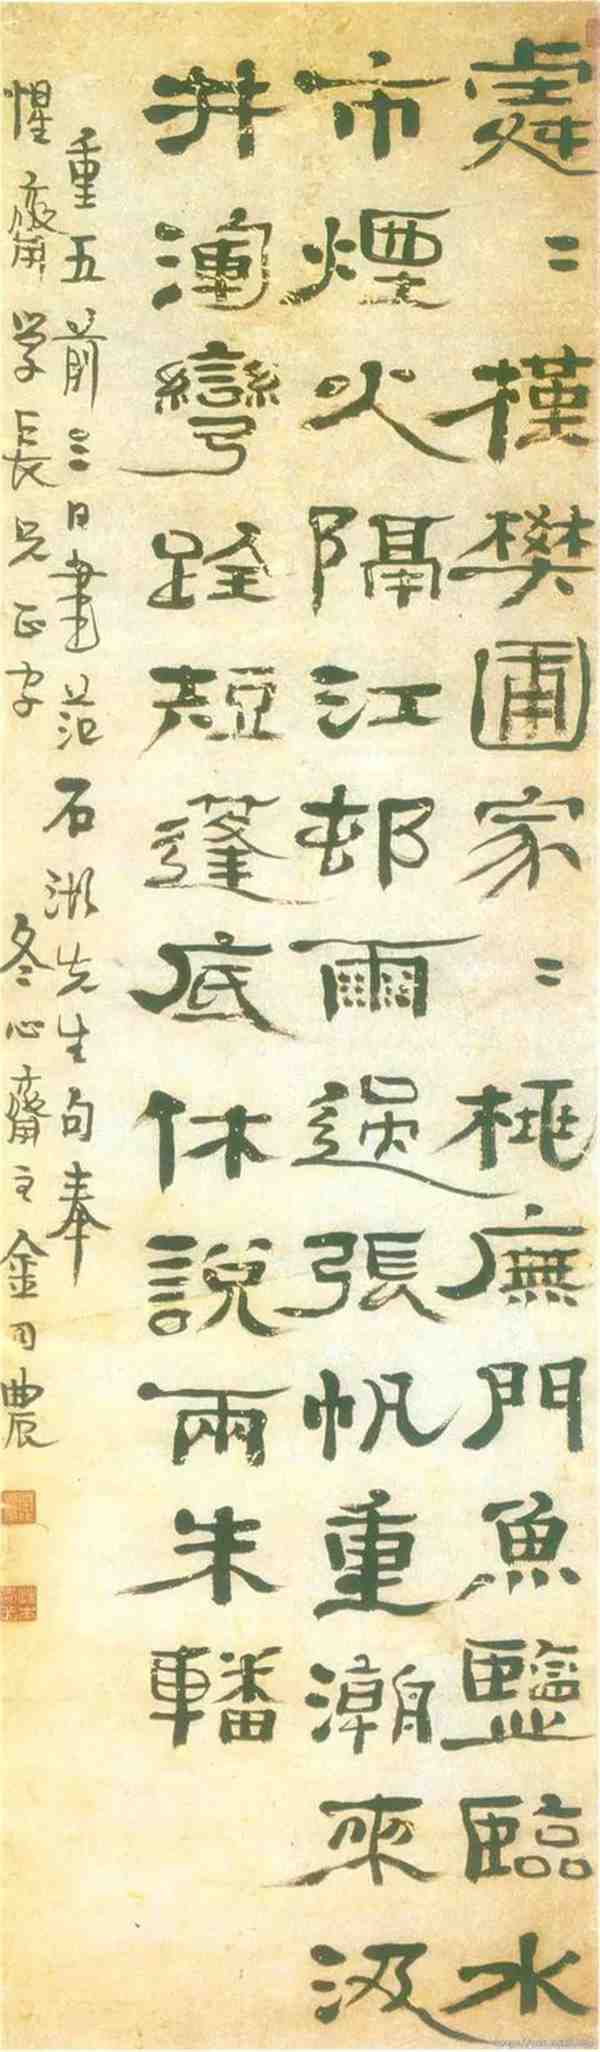 處〻槿樊圃家〻桃廡門魚鹽臨水
市煙火隔江邨雨過張帆重潮來汲
井渾彎跧短蓬底休說兩朱轓
重五前三日書范石湖先生句奉
惺齋学長兄正字 冬心齋主金司農